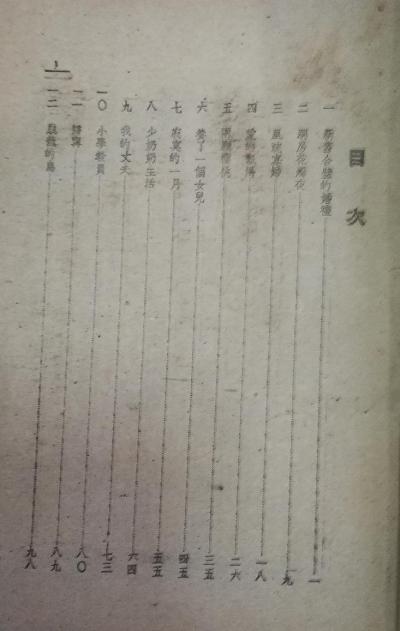 目次
一 新舊合璧的婚禮 一
二 洞房花燭夜 九
三 風流寡婦 一八
四 愛的飢渴 二六
五 兩顆櫻桃 三五
六 養了一個女兒 四五
七 寂寞的一月 五五
八 少奶奶生活 六四
九 我的丈夫 七三
一〇 小學教員 八〇
一一 歸寧 八九
一二 的鳥 九八